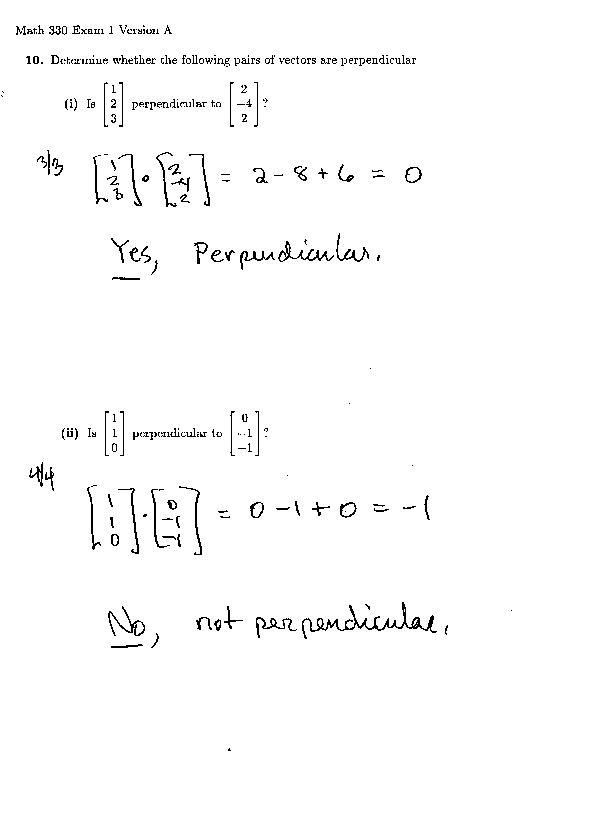 Math 330 Exam 1 Version A
10. Determine whether the following pairs of vectors are perpendicular
(i) Is [1 2 3] perpendicular to [2 -4 2]?
3/3
[1 2 3] · [2 -4 2] = 2 - 8 + 6 = 0
Yes, Perpendicular.
(ii) Is [1 1 0] perpendicular to [0 -1 -1]?
4/4
[1 1 0] · [0 -1 -1] = 0 - 1 + 0 = -1
No, not perpendicular.